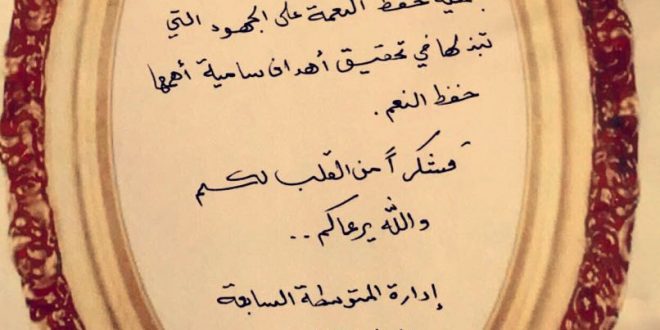 حفظ النعمة على الجهود التي
تبذلها في تحقيق أهداف سامية أهمها
حفظ النعم .
فشكراً من القلب لكم
والله يرعاكم ..
إدارة المتوسطة السابعة